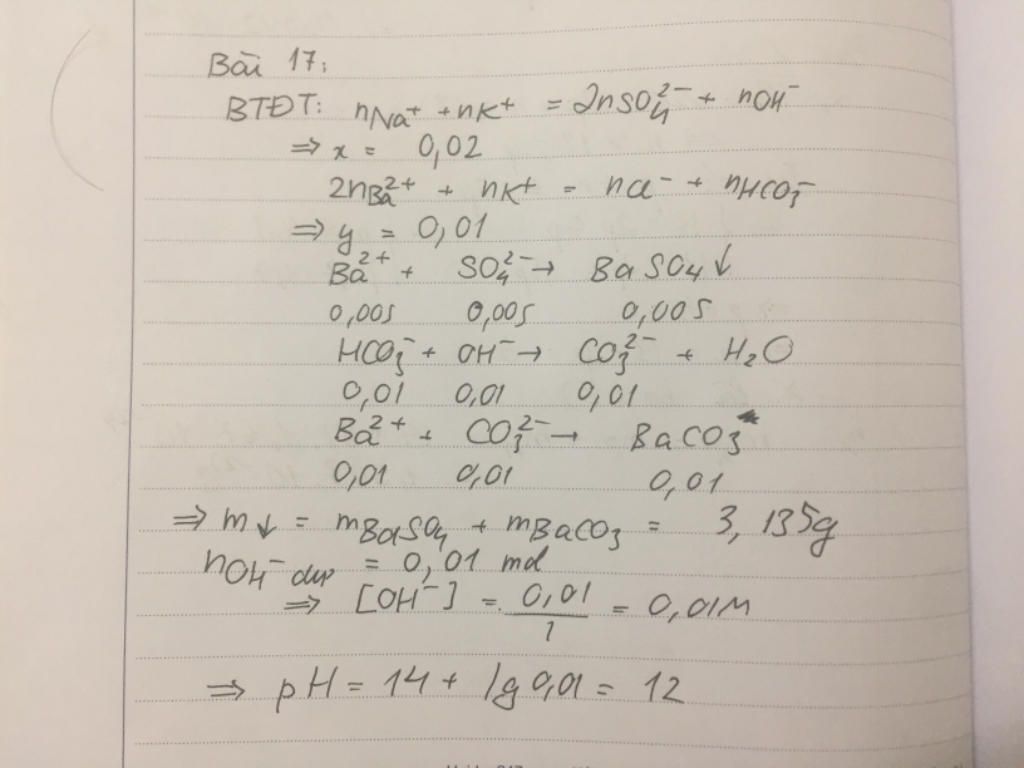 Bài 17:
BTĐT: nNa⁺ + nK⁺ = 2nSO₄²⁻ + nOH⁻
⇒ x = 0,02
2nBa²⁺ + nK⁺ = nCl⁻ + nHCO₃⁻
⇒ y = 0,01
Ba²⁺ + SO₄²⁻ → BaSO₄↓
0,005 0,005 0,005
HCO₃⁻ + OH⁻ → CO₃²⁻ + H₂O
0,01 0,01 0,01
Ba²⁺ + CO₃²⁻ → BaCO₃
0,01 0,01 0,01
⇒ m↓ = mBaSO₄ + mBaCO₃ = 3,135g
nOH⁻ dư = 0,01 mol
⇒ [OH⁻] = 0,01/1 = 0,01M
⇒ pH = 14 + lg 0,01 = 12